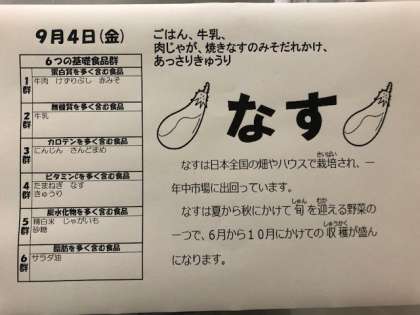 9月4日(金)
ごはん、牛乳、
肉じゃが、焼きなすのみそだれかけ、
あっさりきゅうり
6つの基礎食品群
蛋白質を多く含む食品
1群
牛肉 けずりぶし 赤みそ
無機質を多く含む食品
2群
牛乳
カロテンを多く含む食品
3群
にんじん さんどまめ
ビタミンCを多く含む食品
4群
たまねぎ なす
きゅうり
炭水化物を多く含む食品
5群
精白米 じゃがいも
砂糖
脂肪を多く含む食品
6群
サラダ油
なす
なすは日本全国の畑やハウスで栽培され、一
さいばい
年中市場に出回っています。
なすは夏から秋にかけて旬を迎える野菜の
しゅん むか
一つで、6月から10月にかけての収穫が盛ん
しゅうかく
になります。